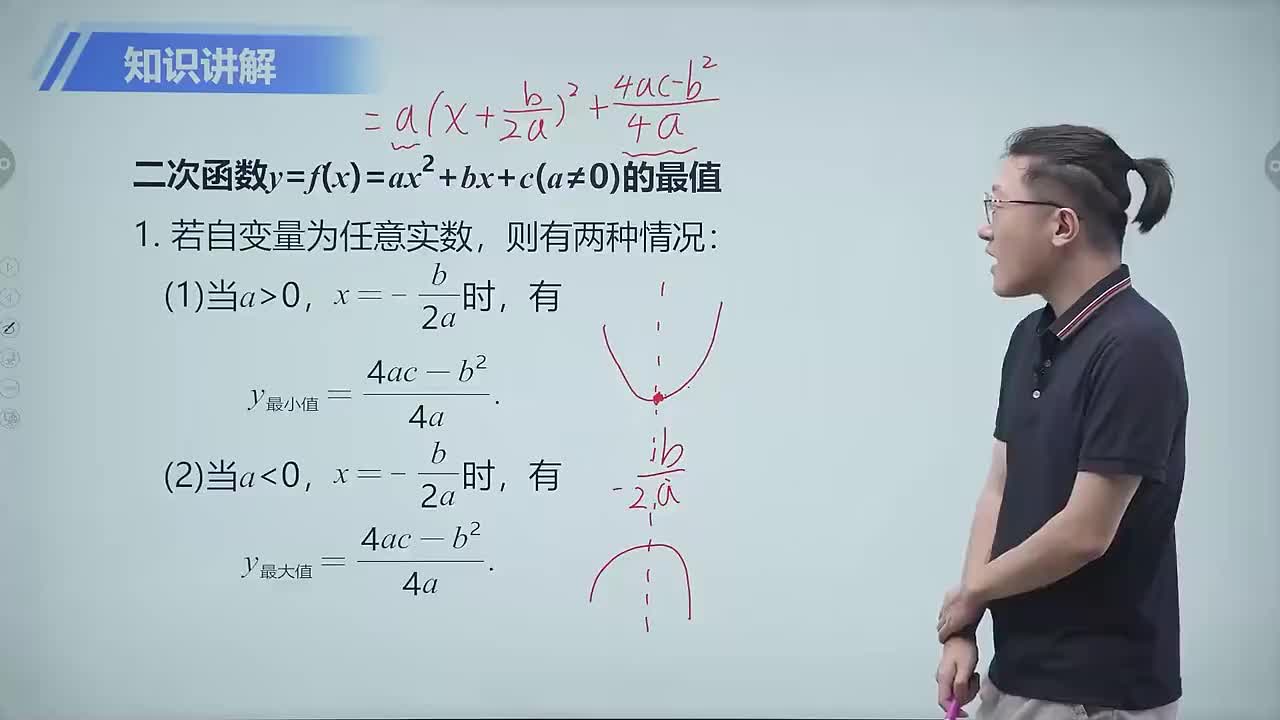 知识讲解
= a(x+b/2a)²+4ac-b²/4a
二次函数y=f(x)=ax²+bx+c(a≠0)的最值
1. 若自变量为任意实数，则有两种情况：
(1)当a>0，x=-b/2a时，有
y最小值=4ac-b²/4a.
(2)当a<0，x=-b/2a时，有
y最大值=4ac-b²/4a.
-b/2a